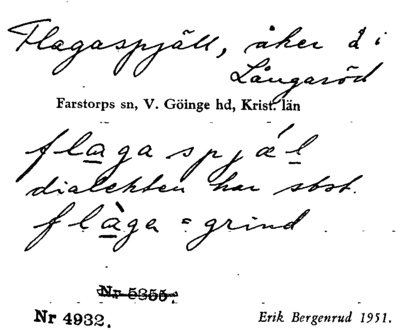 Flagaspjäll, åker 2 i
Långaröd
Farstorps sn, V. Göinge hd, Krist. län
flaga spjál
dialekten har sbst.
flàga = grind
Nr 5355.
Nr 4932.
Erik Bergenrud 1951.